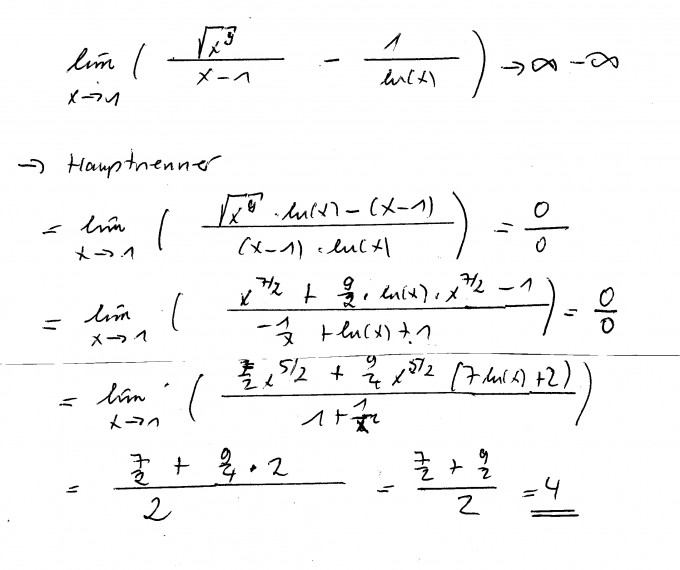 lim x→1 ( √x⁹ / (x−1) − 1 / ln(x) ) → ∞ − ∞
→ Hauptnenner
= lim x→1 ( (√x⁹ · ln(x) − (x−1)) / ((x−1) · ln(x)) ) = 0/0
= lim x→1 ( (x^7/2 + 9/2 · ln(x) · x^7/2 − 1) / (−1/x + ln(x) + 1) ) = 0/0
= lim x→1 ( (7/2 x^5/2 + 9/4 x^5/2 (7 ln(x) + 2)) / (1 + 1/x²) )
= (7/2 + 9/4 · 2) / 2 = (7/2 + 9/2) / 2 = 4